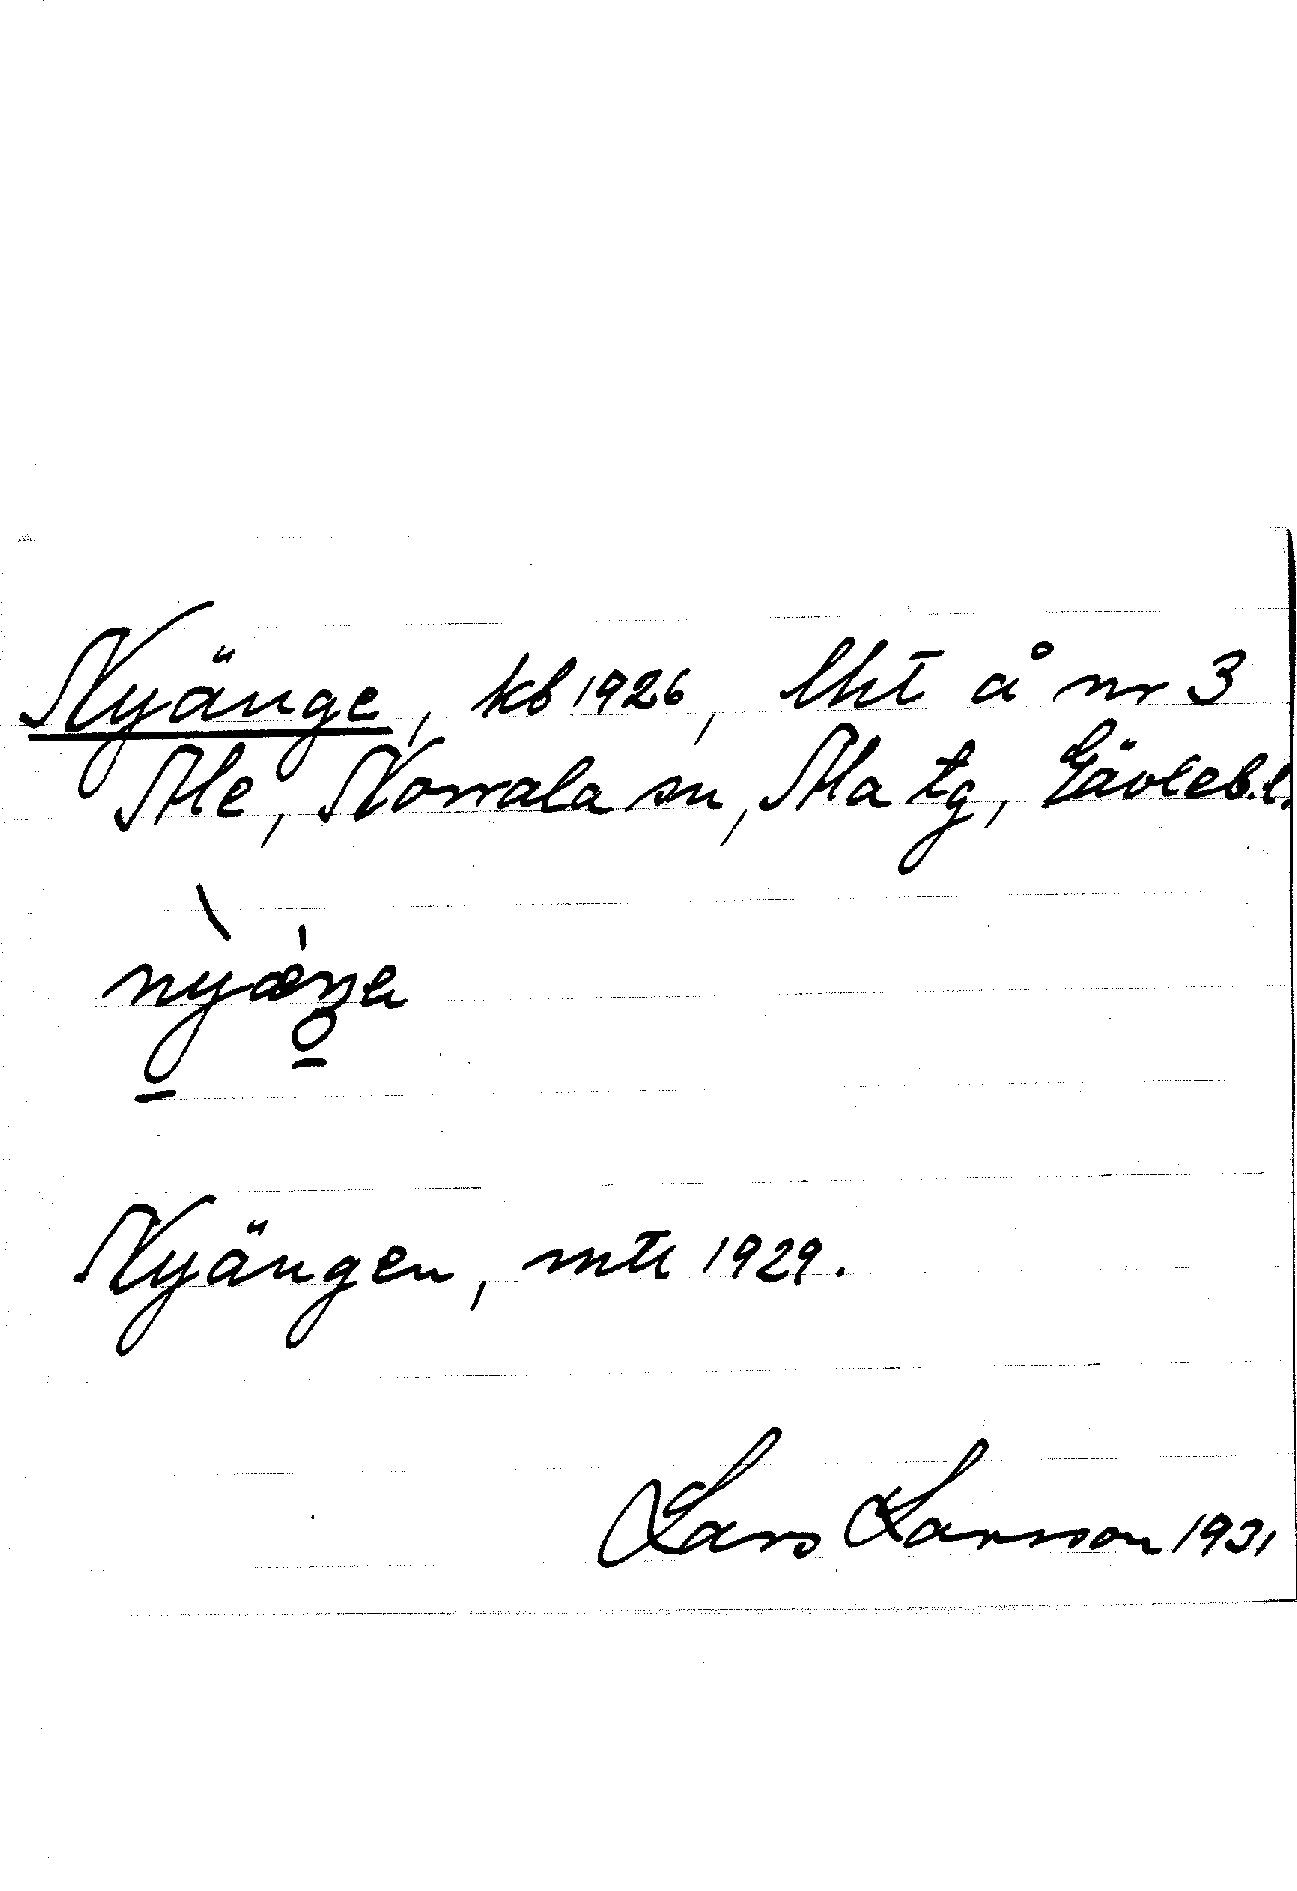 Nyänge, kb 1926, lht å nr 3
Ale, Norrala sn, Ala tg, Gävleb.l.
Nyängen, mtl 1929.
Lars Larsson 1931